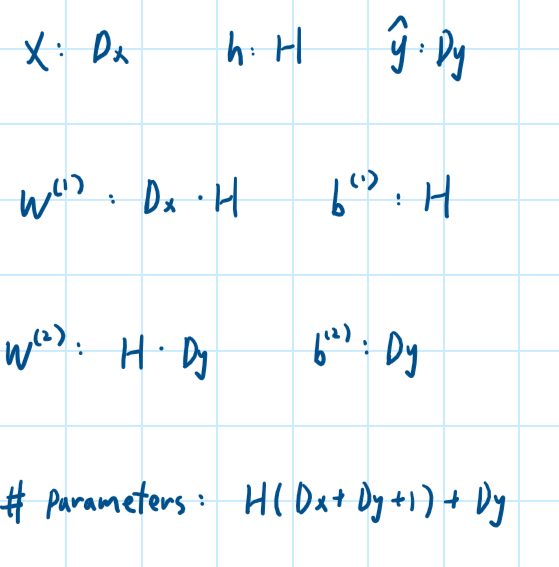 X: Dx h: H ŷ: Dy
W⁽¹⁾: Dx · H b⁽¹⁾: H
W⁽²⁾: H · Dy b⁽²⁾: Dy
# Parameters: H(Dx+Dy+1)+Dy